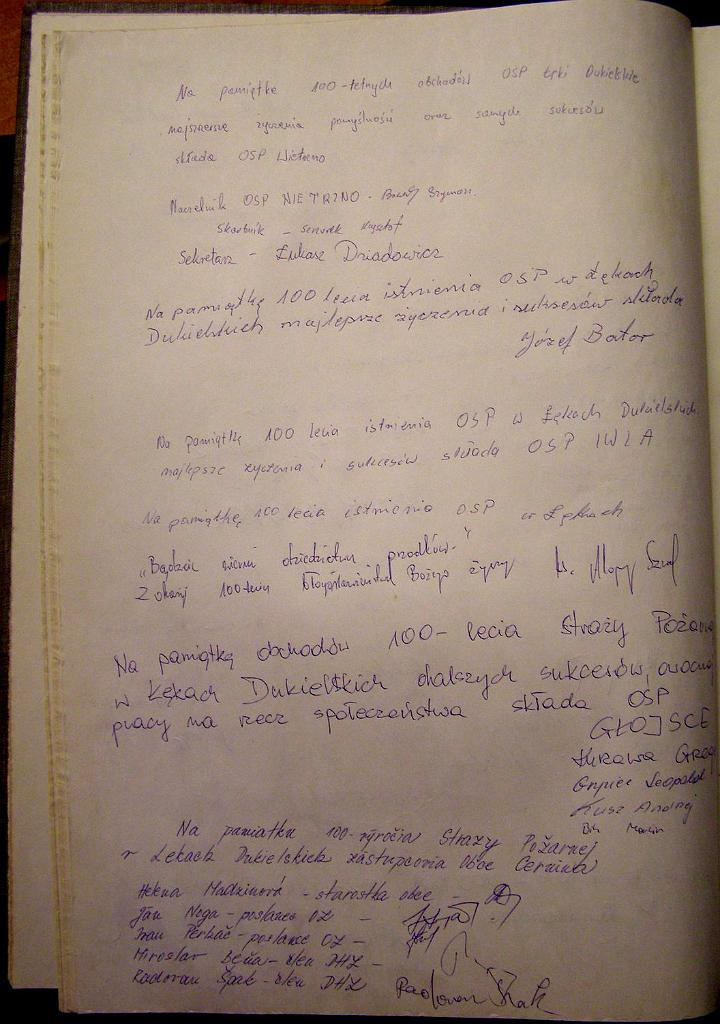 Na pamiątkę 100-letnych obchodów OSP Łęki Dukielskie
najszczersze życzenia pomyślności oraz samych sukcesów
składa OSP Wietrzno
Naczelnik OSP WIETRZNO - Szymon
Skarbnik - Krzysztof
Sekretarz - Łukasz Dziadowicz
Na pamiątkę 100 lecia istnienia OSP w Łękach
Dukielskich najlepsze życzenia i sukcesów składa
Józef Bator
Na pamiątkę 100 lecia istnienia OSP w Łękach Dukielskich
najlepsze życzenia i sukcesów składa OSP IWLA
Na pamiątkę 100 lecia istnienia OSP w Łękach
„Bądźcie wierni dziedzictwu przodków"
Z okazji 100-lecia błogosławieństwa Bożego życzy ks.
Na pamiątkę obchodów 100-lecia Straży Pożarnej
w Łękach Dukielskich dalszych sukcesów, owocnej
pracy na rzecz społeczeństwa składa OSP
GŁOJSCE
Leopold
Kusz Andrzej
Marcin
Na pamiatku 100-výročia Strazy Požarnej
v Lekach Dukielskich zástupcovia Obce Cernina
Helena Madzinová - starostka obce -
Ján Noga - poslanec OZ -
Ivan Perháč - poslanec OZ -
Miroslav Beňa - člen DHZ -
Radovan Špak - člen DHZ Radovan Špak